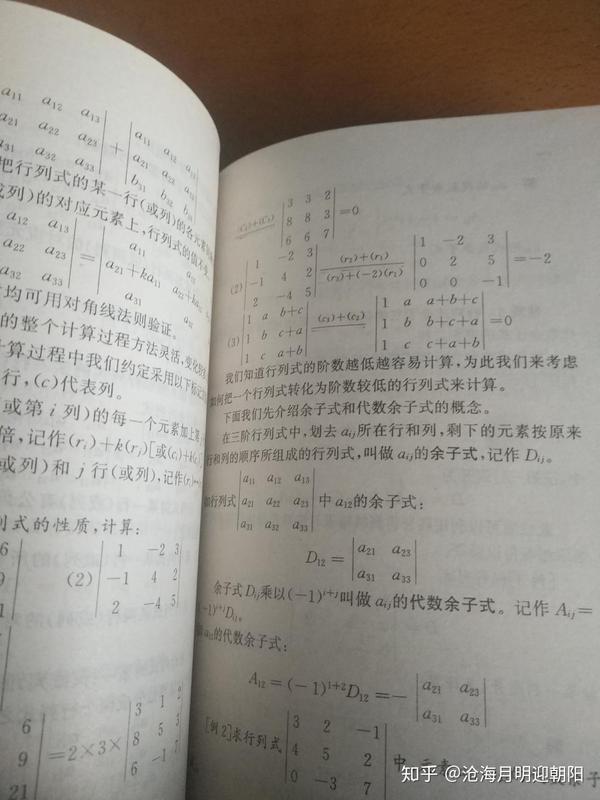 a₁₁ a₁₂ a₁₃
a₂₁ a₂₂ a₂₃
a₃₁ a₃₂ a₃₃
+
a₁₁ a₁₂ a₁₃
a₂₁ a₂₂ a₂₃
b₃₁ b₃₂ b₃₃
把行列式的某一行(或列)的各元素
或列)的对应元素上,行列式的值不变
a₁₂ a₁₃
a₂₂ a₂₃
a₃₂ a₃₃
=
a₁₁
a₂₁+ka₁₁
a₃₁
均可用对角线法则验证。
的整个计算过程方法灵活,变化较
计算过程中我们约定采用以下标记
行,(c)代表列。
或第 i 列)的每一个元素加上第
倍,记作(rᵢ)+k(rⱼ)[或(cᵢ)+k(cⱼ)
或列)和 j 行(或列),记作
列式的性质,计算:
6
9
(2)
1 -2 3
-1 4 2
2 -4 5
6
9
21
=2×3×
3 1 2
8 5 3
6 -1 7
(c₂)+(c₃)
3 3 2
8 8 3
6 6 7
=0
(2)
1 -2 3
-1 4 2
2 -4 5
(r₂)+(r₁)
(r₃)+(-2)(r₁)
1 -2 3
0 2 5
0 0 -1
=-2
(3)
1 a b+c
1 b c+a
1 c a+b
(c₃)+(c₂)
1 a a+b+c
1 b b+c+a
1 c c+a+b
=0
我们知道行列式的阶数越低越容易计算,为此我们来考虑
如何把一个行列式转化为阶数较低的行列式来计算。
下面我们先介绍余子式和代数余子式的概念。
在三阶行列式中,划去 aᵢⱼ所在行和列,剩下的元素按原来
行和列的顺序所组成的行列式,叫做 aᵢⱼ的余子式,记作 Dᵢⱼ。
如行列式
a₁₁ a₁₂ a₁₃
a₂₁ a₂₂ a₂₃
a₃₁ a₃₂ a₃₃
中 a₁₂的余子式:
D₁₂=
a₂₁ a₂₃
a₃₁ a₃₃
余子式 Dᵢⱼ乘以(-1)ⁱ⁺ʲ叫做 aᵢⱼ的代数余子式。记作 Aᵢⱼ=
-1)ⁱ⁺ʲDᵢⱼ。
a₁₂的代数余子式:
A₁₂=(-1)¹⁺²D₁₂=-
a₂₁ a₂₃
a₃₁ a₃₃
[例 2]求行列式
3 2 -1
4 5 2
0 -3 7
中元素
余子
知乎 @沧海月明迎朝阳